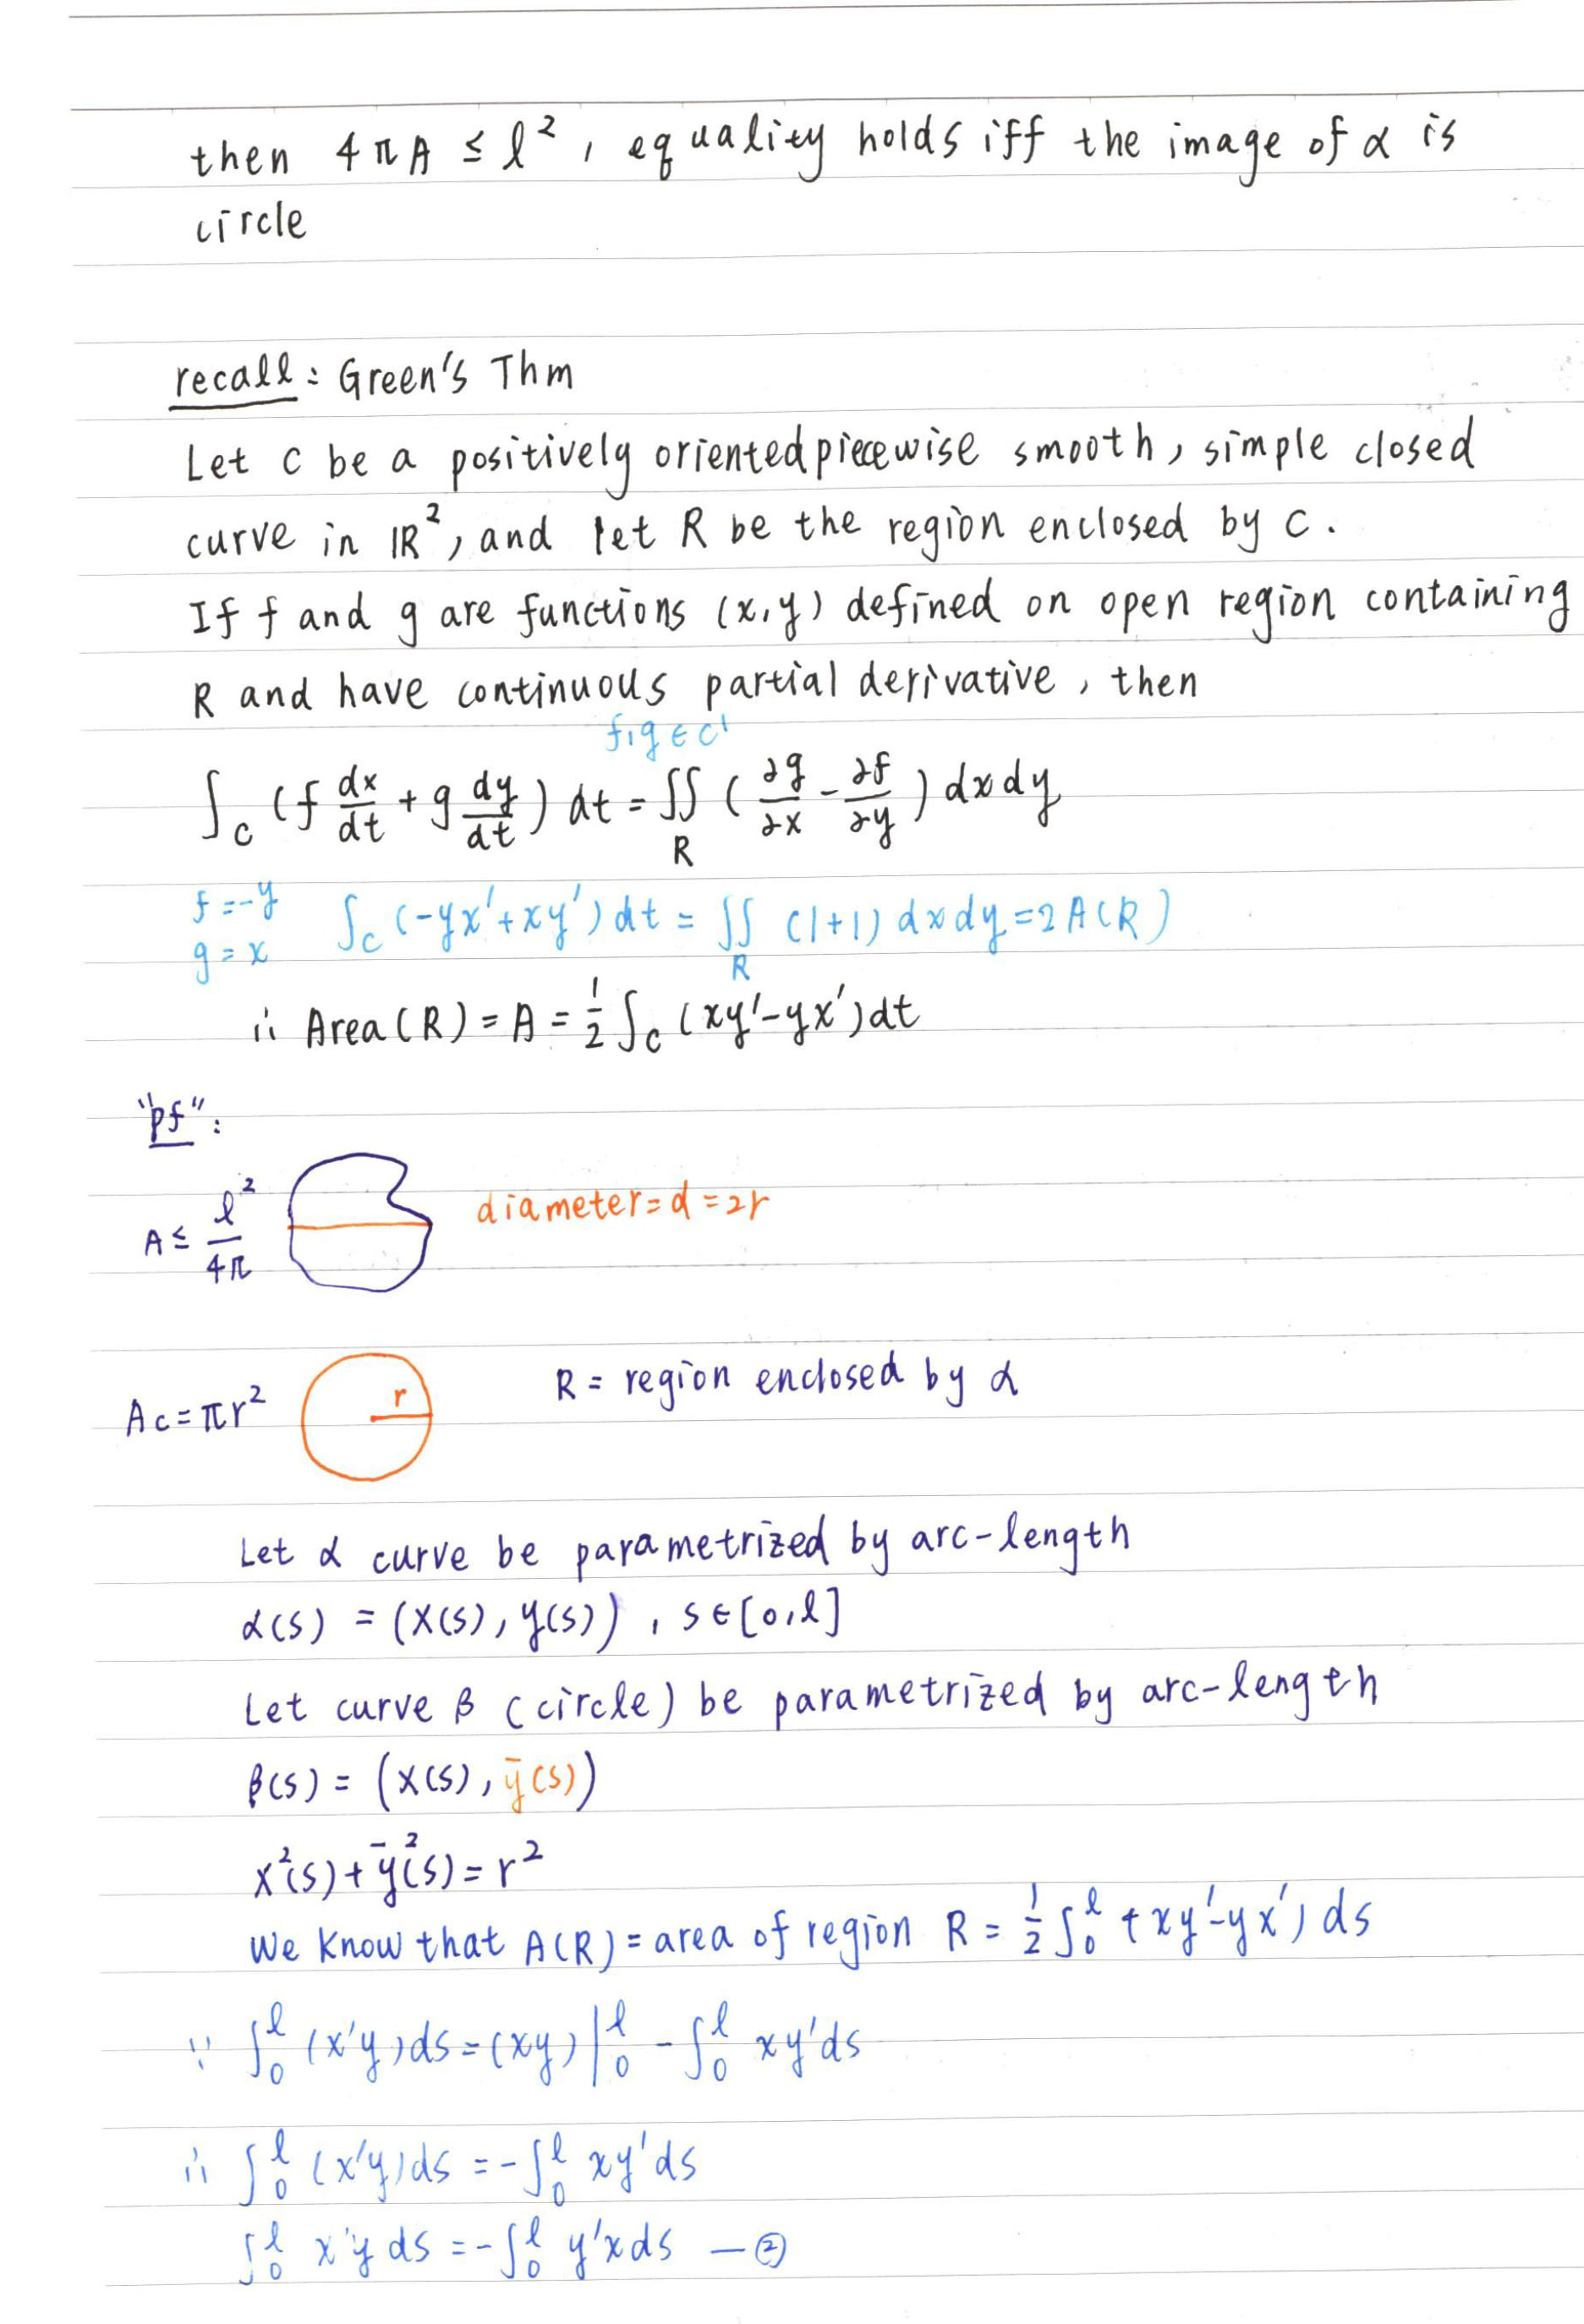 then 4πA ≤ l², equality holds iff the image of α is
circle
recall: Green's Thm
Let C be a positively oriented piecewise smooth, simple closed
curve in ℝ², and let R be the region enclosed by C.
If f and g are functions (x,y) defined on open region containing
R and have continuous partial derivative, then
f,g ∈ C¹
∫_C (f dx/dt + g dy/dt) dt = ∬_R (∂g/∂x - ∂f/∂y) dxdy
f = -y
g = x
∫_C (-yx' + xy') dt = ∬_R (1+1) dxdy = 2A(R)
∴ Area(R) = A = 1/2 ∫_C (xy' - yx') dt
"pf":
A ≤ l²/4π
diameter = d = 2r
Ac = πr²
r
R = region enclosed by α
Let α curve be parametrized by arc-length
α(s) = (x(s), y(s)), s ∈ [0,l]
Let curve β (circle) be parametrized by arc-length
β(s) = (x(s), ȳ(s))
x²(s) + ȳ²(s) = r²
We know that A(R) = area of region R = 1/2 ∫₀^l (xy' - yx') ds
∵ ∫₀^l (x'y) ds = (xy)|₀^l - ∫₀^l xy' ds
∴ ∫₀^l (x'y) ds = -∫₀^l xy' ds
∫₀^l x'y ds = -∫₀^l y'x ds — ②